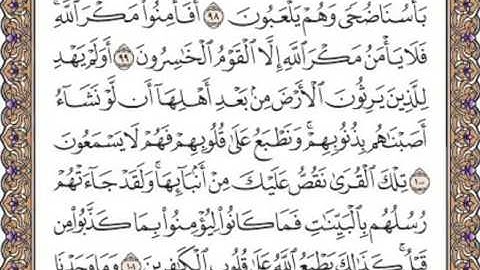 بَأْسُنَا ضُحًى وَهُمْ يَلْعَبُونَ ٩٨ أَفَأَمِنُوا۟ مَكْرَ ٱللَّهِ ۚ
فَلَا يَأْمَنُ مَكْرَ ٱللَّهِ إِلَّا ٱلْقَوْمُ ٱلْخَـٰسِرُونَ ٩٩ أَوَلَمْ يَهْدِ
لِلَّذِينَ يَرِثُونَ ٱلْأَرْضَ مِنۢ بَعْدِ أَهْلِهَآ أَن لَّوْ نَشَآءُ
أَصَبْنَـٰهُم بِذُنُوبِهِمْ ۚ وَنَطْبَعُ عَلَىٰ قُلُوبِهِمْ فَهُمْ لَا يَسْمَعُونَ
١٠٠ تِلْكَ ٱلْقُرَىٰ نَقُصُّ عَلَيْكَ مِنْ أَنۢبَآئِهَا ۚ وَلَقَدْ جَآءَتْهُمْ
رُسُلُهُم بِٱلْبَيِّنَـٰتِ فَمَا كَانُوا۟ لِيُؤْمِنُوا۟ بِمَا كَذَّبُوا۟ مِن
قَبْلُ ۚ كَذَٰلِكَ يَطْبَعُ ٱللَّهُ عَلَىٰ قُلُوبِ ٱلْكَـٰفِرِينَ ١٠١ وَمَا وَجَدْنَا